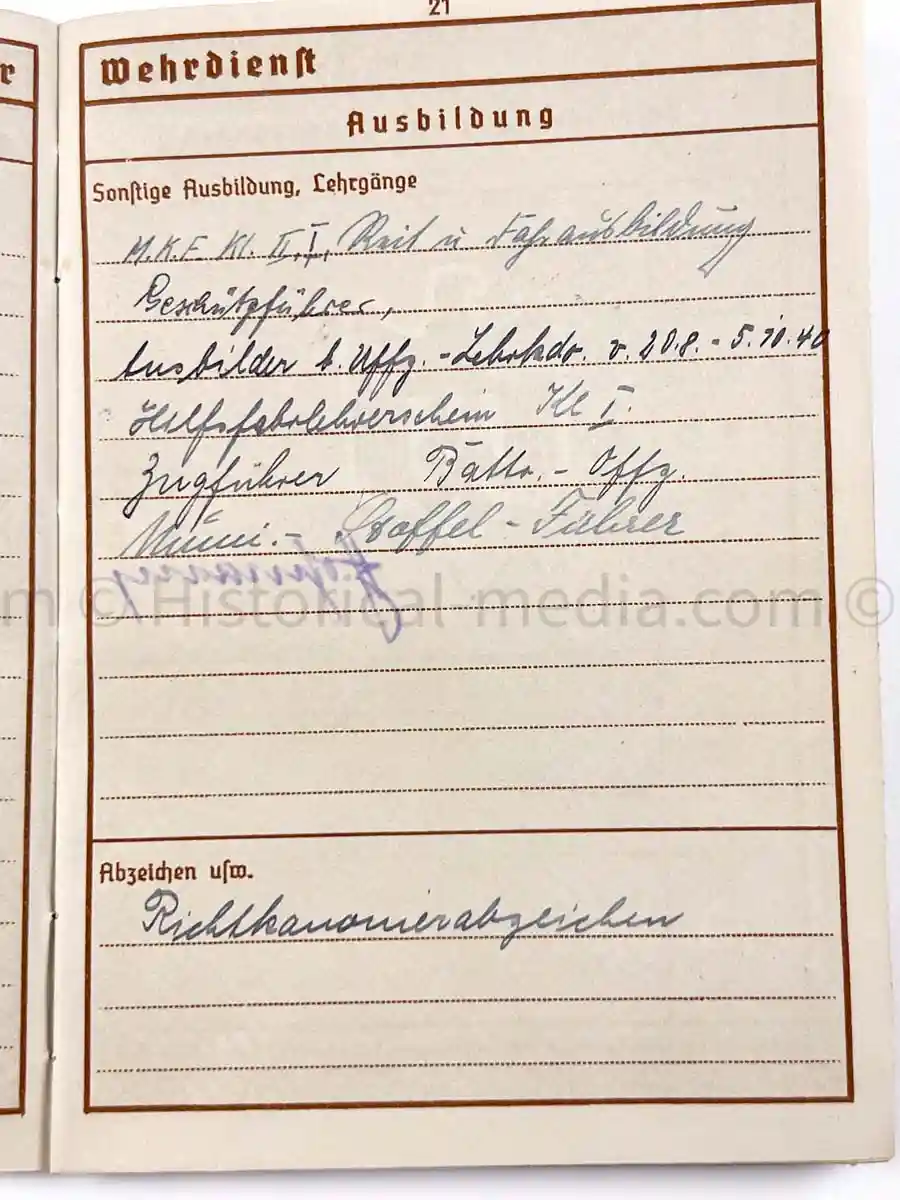 21
r
Wehrdienst
Ausbildung
Sonstige Ausbildung, Lehrgänge
M.K.F. Kl. II, I, Reit u Fahrausbildung
Geschützführer,
Ausbilder b. Uffz.-Lehrkdo. v. 20.8. - 5.10.40
Hilfsfahrlehrerschein Kl I.
Zugführer Battr.-Offz.
Muni.- Staffel-Führer
m © Historical-media.com ©
Abzeichen usw.
Richtkanonierabzeichen